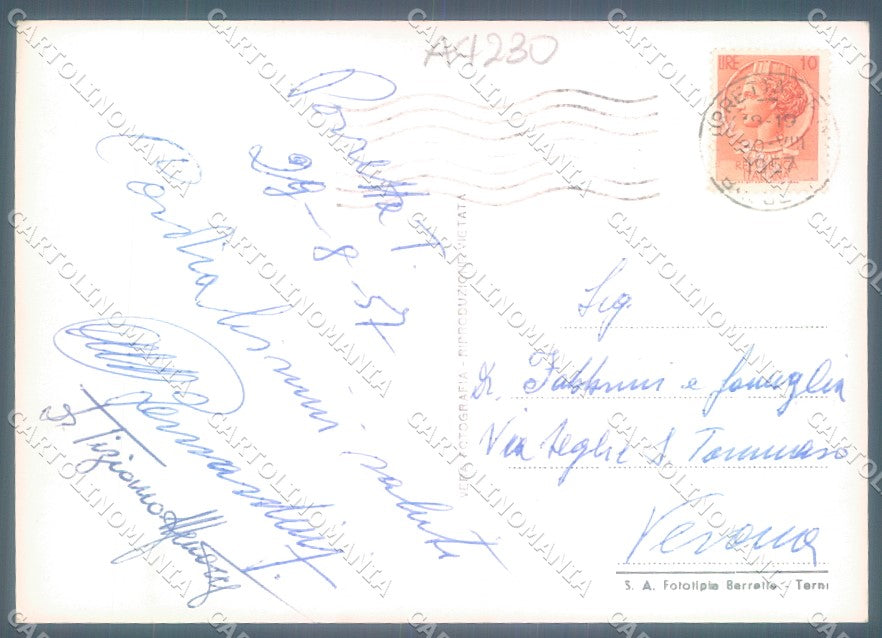 A4230
LIRE 10
1957
Porretta T.
29-8-57
Cordialissimi saluti
Dr Tiziano
VERA FOTOGRAFIA - RIPRODUZIONE VIETATA
Sig.
Dr. Fabbrini e famiglia
Via Seghe S. Tommaso
Verona
S. A. Fototipia Berretta - Terni
CARTOLINOMANIA